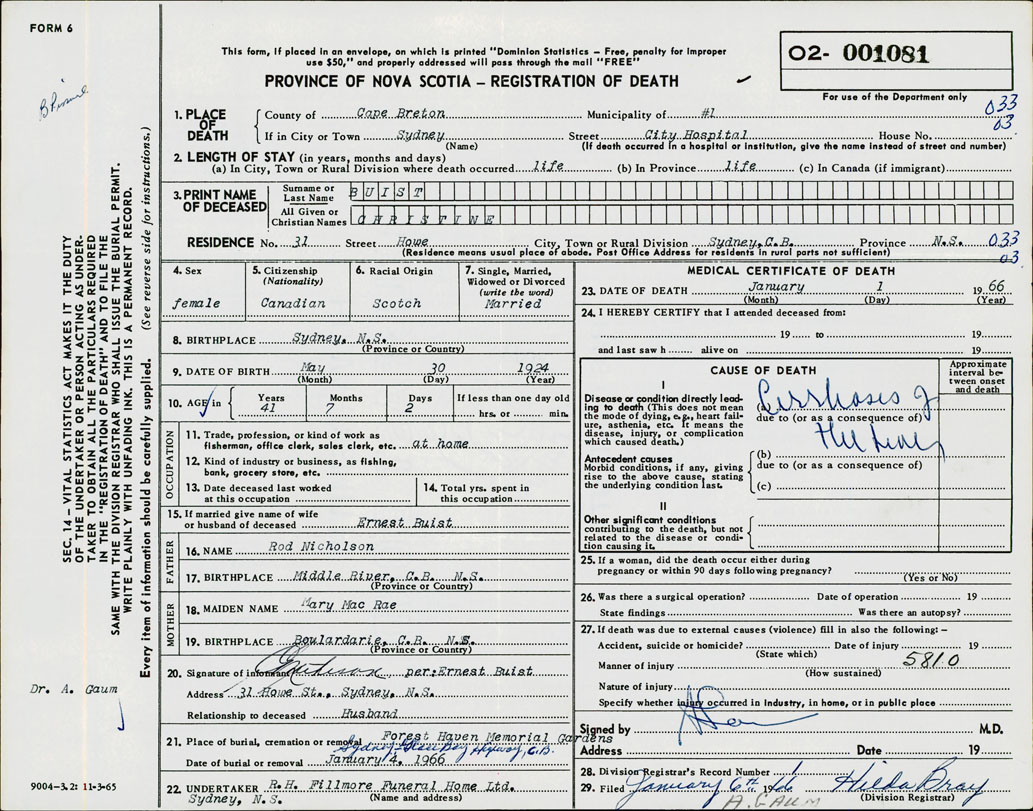 FORM 6
This form, if placed in an envelope, on which is printed "Dominion Statistics – Free, penalty for improper
use $50," and properly addressed will pass through the mail "FREE"
PROVINCE OF NOVA SCOTIA – REGISTRATION OF DEATH
02- 001081
For use of the Department only
033
03
1. PLACE OF DEATH
County of Cape Breton Municipality of #1
If in City or Town Sydney Street City Hospital House No.
(Name) (If death occurred in a hospital or institution, give the name instead of street and number)
2. LENGTH OF STAY (in years, months and days)
(a) In City, Town or Rural Division where death occurred life (b) In Province life (c) In Canada (if immigrant)
3. PRINT NAME OF DECEASED
Surname or Last Name BUIST
All Given or Christian Names CHRISTINE
RESIDENCE No. 31 Street Howe City, Town or Rural Division Sydney, C.B. Province N.S. 033
(Residence means usual place of abode. Post Office Address for residents in rural parts not sufficient) 03
4. Sex
female
5. Citizenship
(Nationality)
Canadian
6. Racial Origin
Scotch
7. Single, Married,
Widowed or Divorced
(write the word)
Married
8. BIRTHPLACE Sydney, N.S.
(Province or Country)
9. DATE OF BIRTH May 30 1924
(Month) (Day) (Year)
10. AGE in Years 41 Months 7 Days 2 If less than one day old
hrs. or min.
OCCUPATION
11. Trade, profession, or kind of work as
fisherman, office clerk, sales clerk, etc. at home
12. Kind of industry or business, as fishing,
bank, grocery store, etc.
13. Date deceased last worked
at this occupation
14. Total yrs. spent in
this occupation
15. If married give name of wife
or husband of deceased Ernest Buist
FATHER
16. NAME Rod Nicholson
17. BIRTHPLACE Middle River, C.B. N.S.
(Province or Country)
MOTHER
18. MAIDEN NAME Mary Mac Rae
19. BIRTHPLACE Boulardarie, C.B. N.S.
(Province or Country)
20. Signature of informant per:Ernest Buist
Address 31 Howe St., Sydney, N.S.
Relationship to deceased Husband
21. Place of burial, cremation or removal Forest Haven Memorial Gardens
Sydney-Glace Bay Highway, C.B.
Date of burial or removal January 4, 1966
22. UNDERTAKER R.H. Fillmore Funeral Home Ltd.
Sydney, N.S. (Name and address)
MEDICAL CERTIFICATE OF DEATH
23. DATE OF DEATH January 1 1966
(Month) (Day) (Year)
24. I HEREBY CERTIFY that I attended deceased from:
19 to 19
and last saw h alive on 19
CAUSE OF DEATH
Approximate interval between onset and death
I
Disease or condition directly leading
to death (This does not mean
the mode of dying, e.g., heart failure,
asthenia, etc. It means the
disease, injury, or complication
which caused death.)
(a) Cirrhosis of
due to (or as a consequence of)
the Liver
Antecedent causes
Morbid conditions, if any, giving
rise to the above cause, stating
the underlying condition last.
(b)
due to (or as a consequence of)
(c)
II
Other significant conditions
contributing to the death, but not
related to the disease or condition
causing it.
25. If a woman, did the death occur either during
pregnancy or within 90 days following pregnancy?
(Yes or No)
26. Was there a surgical operation? Date of operation 19
State findings Was there an autopsy?
27. If death was due to external causes (violence) fill in also the following:–
Accident, suicide or homicide? Date of injury 19
(State which)
Manner of injury 5810
(How sustained)
Nature of injury
Specify whether injury occurred in industry, in home, or in public place
Signed by M.D.
Address Date 19
28. Division Registrar's Record Number 1
29. Filed January 6th 1966 Hilda Bray
A. GAUM (Division Registrar)
SEC. 14 – VITAL STATISTICS ACT MAKES IT THE DUTY
OF THE UNDERTAKER OR PERSON ACTING AS UNDERTAKER
TO OBTAIN ALL THE PARTICULARS REQUIRED
IN THE "REGISTRATION OF DEATH" AND TO FILE THE
SAME WITH THE DIVISION REGISTRAR WHO SHALL ISSUE THE BURIAL PERMIT.
WRITE PLAINLY WITH UNFADING INK. THIS IS A PERMANENT RECORD.
Every item of information should be carefully supplied. (See reverse side for instructions.)
Dr. A. Gaum
9004-3.2: 11-3-65